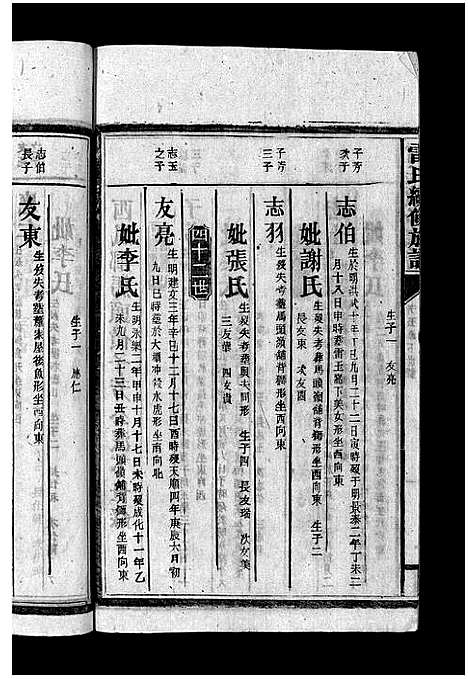 雷氏續修族譜
生子一 友亮
子芳次子
志伯
生於明洪武十年丁巳九月二十二日寅時歿于明景泰二年丁未二
月十八日申時葬雷王嘉下美女形坐西向東
妣謝氏
生歿失考葬馬頭嶺舖背獅形坐西向東 生子二
長友東 次友
子芳三子
志羽
生歿失考葬馬頭嶺舖背獅形坐西向東
妣張氏
生歿失考葬與夫同形 生子四 長友瑞 次友美
三友華 四友貴
四十二世
志玉之子
友亮
生明建文三年辛巳十二月十七日酉時歿天順四年庚辰六月初
九日巳時葬於大衝冲水虎形坐南向
妣李氏
生明永樂二年甲申十月十七日未時歿成化十一年乙
未九月二十三日丑時葬馬頭嶺舖背獅形坐西向東
生子一 應仁
志伯長子
友東
生歿失考葬羅家屋後魚形坐西向東